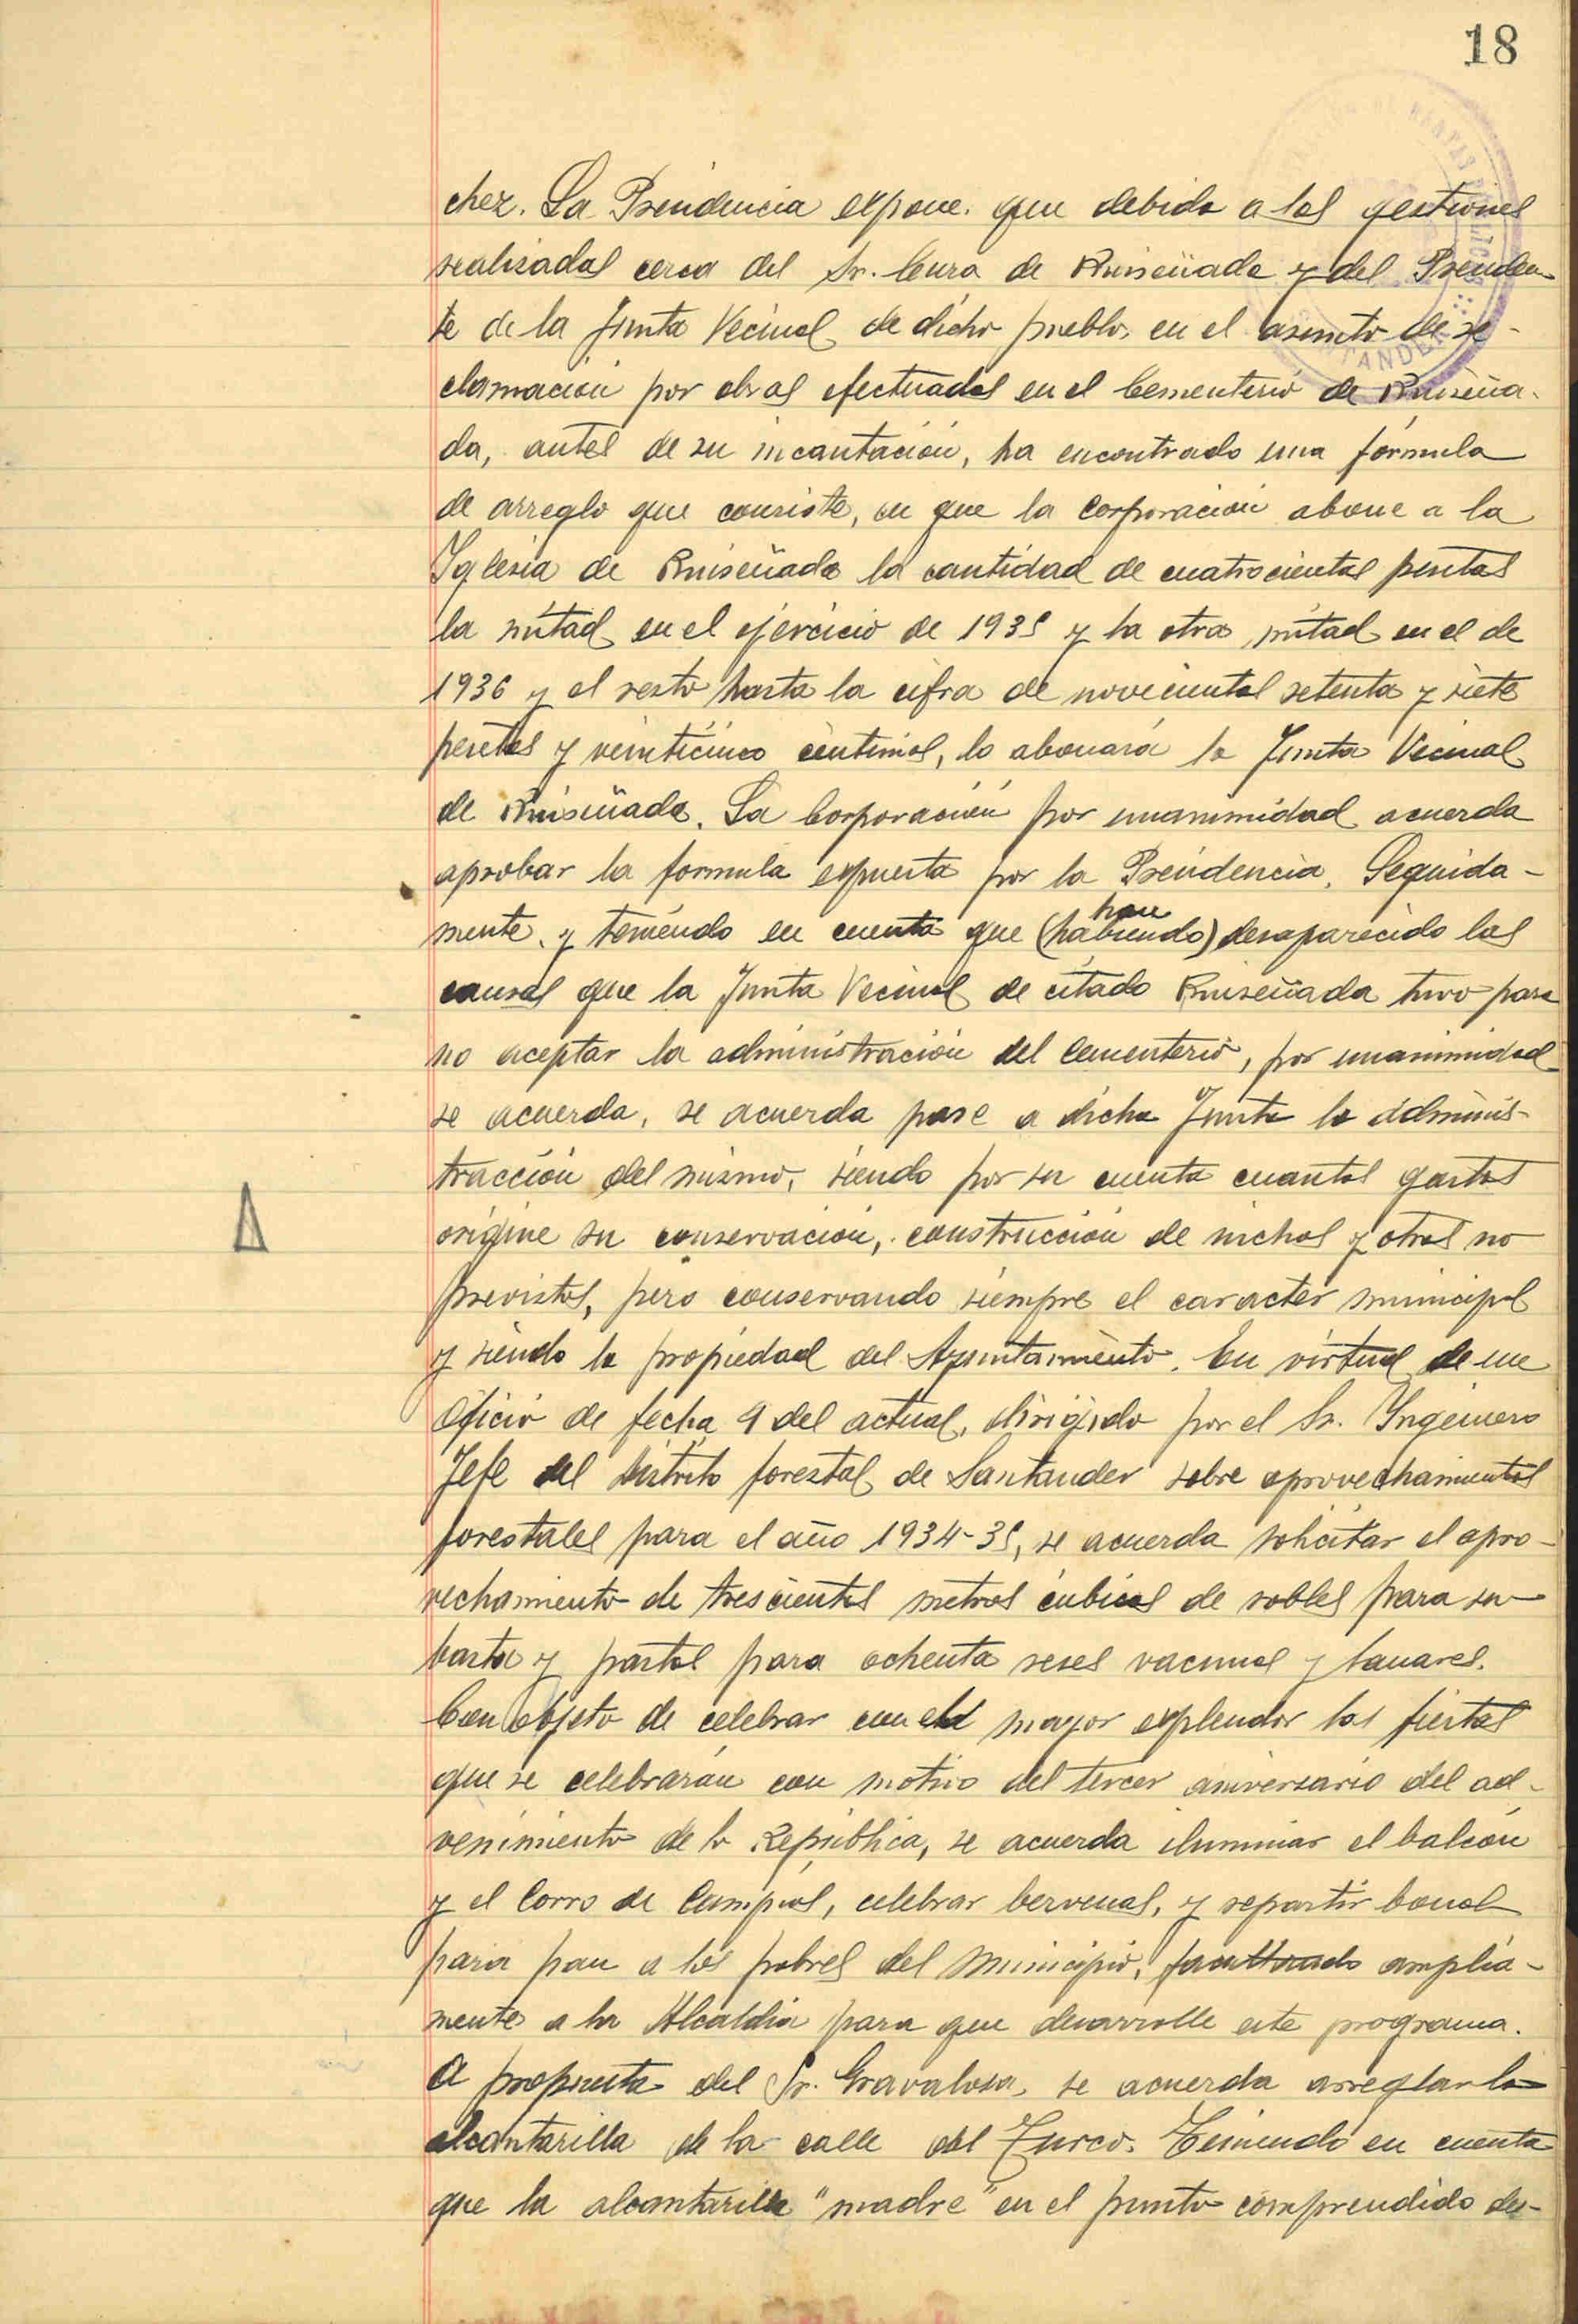 18
chez. La Presidencia expone. que debido a las gestiones
realizadas cerca del Sr. Cura de Ruiseñada y del Presiden-
te de la Junta Vecinal de dicho pueblo, en el asunto de re-
clamación por obras efectuadas en el Cementerio de Ruiseña-
da, antes de su incautación, ha encontrado una fórmula
de arreglo que consiste, en que la Corporación abone a la
Iglesia de Ruiseñada la cantidad de cuatrocientas pesetas
la mitad en el ejercicio de 1935 y la otra mitad en el de
1936 y el resto hasta la cifra de novecientas setenta y siete
pesetas y veinticinco céntimos, lo abonará la Junta Vecinal
de Ruiseñada. La Corporación por unanimidad acuerda
aprobar la formula expuesta por la Presidencia. Seguida-
han
mente, y teniendo en cuenta que (habiendo) desaparecido las
causas que la Junta Vecinal de citado Ruiseñada tuvo para
no aceptar la administración del Cementerio, por unanimidad
se acuerda, se acuerda pase a dicha Junta la adminis-
tracción del mismo, siendo por su cuenta cuantos gastos
origine su conservación, construcción de nichos y otros no
previstos, pero conservando siempre el caracter municipal
y siendo la propiedad del Ayuntamiento. En virtud de un
Oficio de fecha 9 del actual, dirigido por el Sr. Ingeniero
Jefe del Distrito forestal de Santander sobre aprovechamientos
forestales para el año 1934-35, se acuerda solicitar el apro-
vechamiento de trescientos metros cúbicos de robles para su-
basta y pastos para ochenta reses vacunas y lanares.
Con objeto de celebrar con el mayor esplendor las fiestas
que se celebrarán con motivo del tercer aniversario del ad-
venimiento de la República, se acuerda iluminar el balcón
y el Corro de Campios, celebrar bervenas, y repartir bonos
para pan a los pobres del Municipio, facultando amplia-
mente a la Alcaldía para que desarrolle este programa.
A propuesta del Sr. Gravalosa, se acuerda arreglar la
alcantarilla de la calle del Turco. Teniendo en cuenta
que la alcantarilla "madre" en el punto comprendido des-